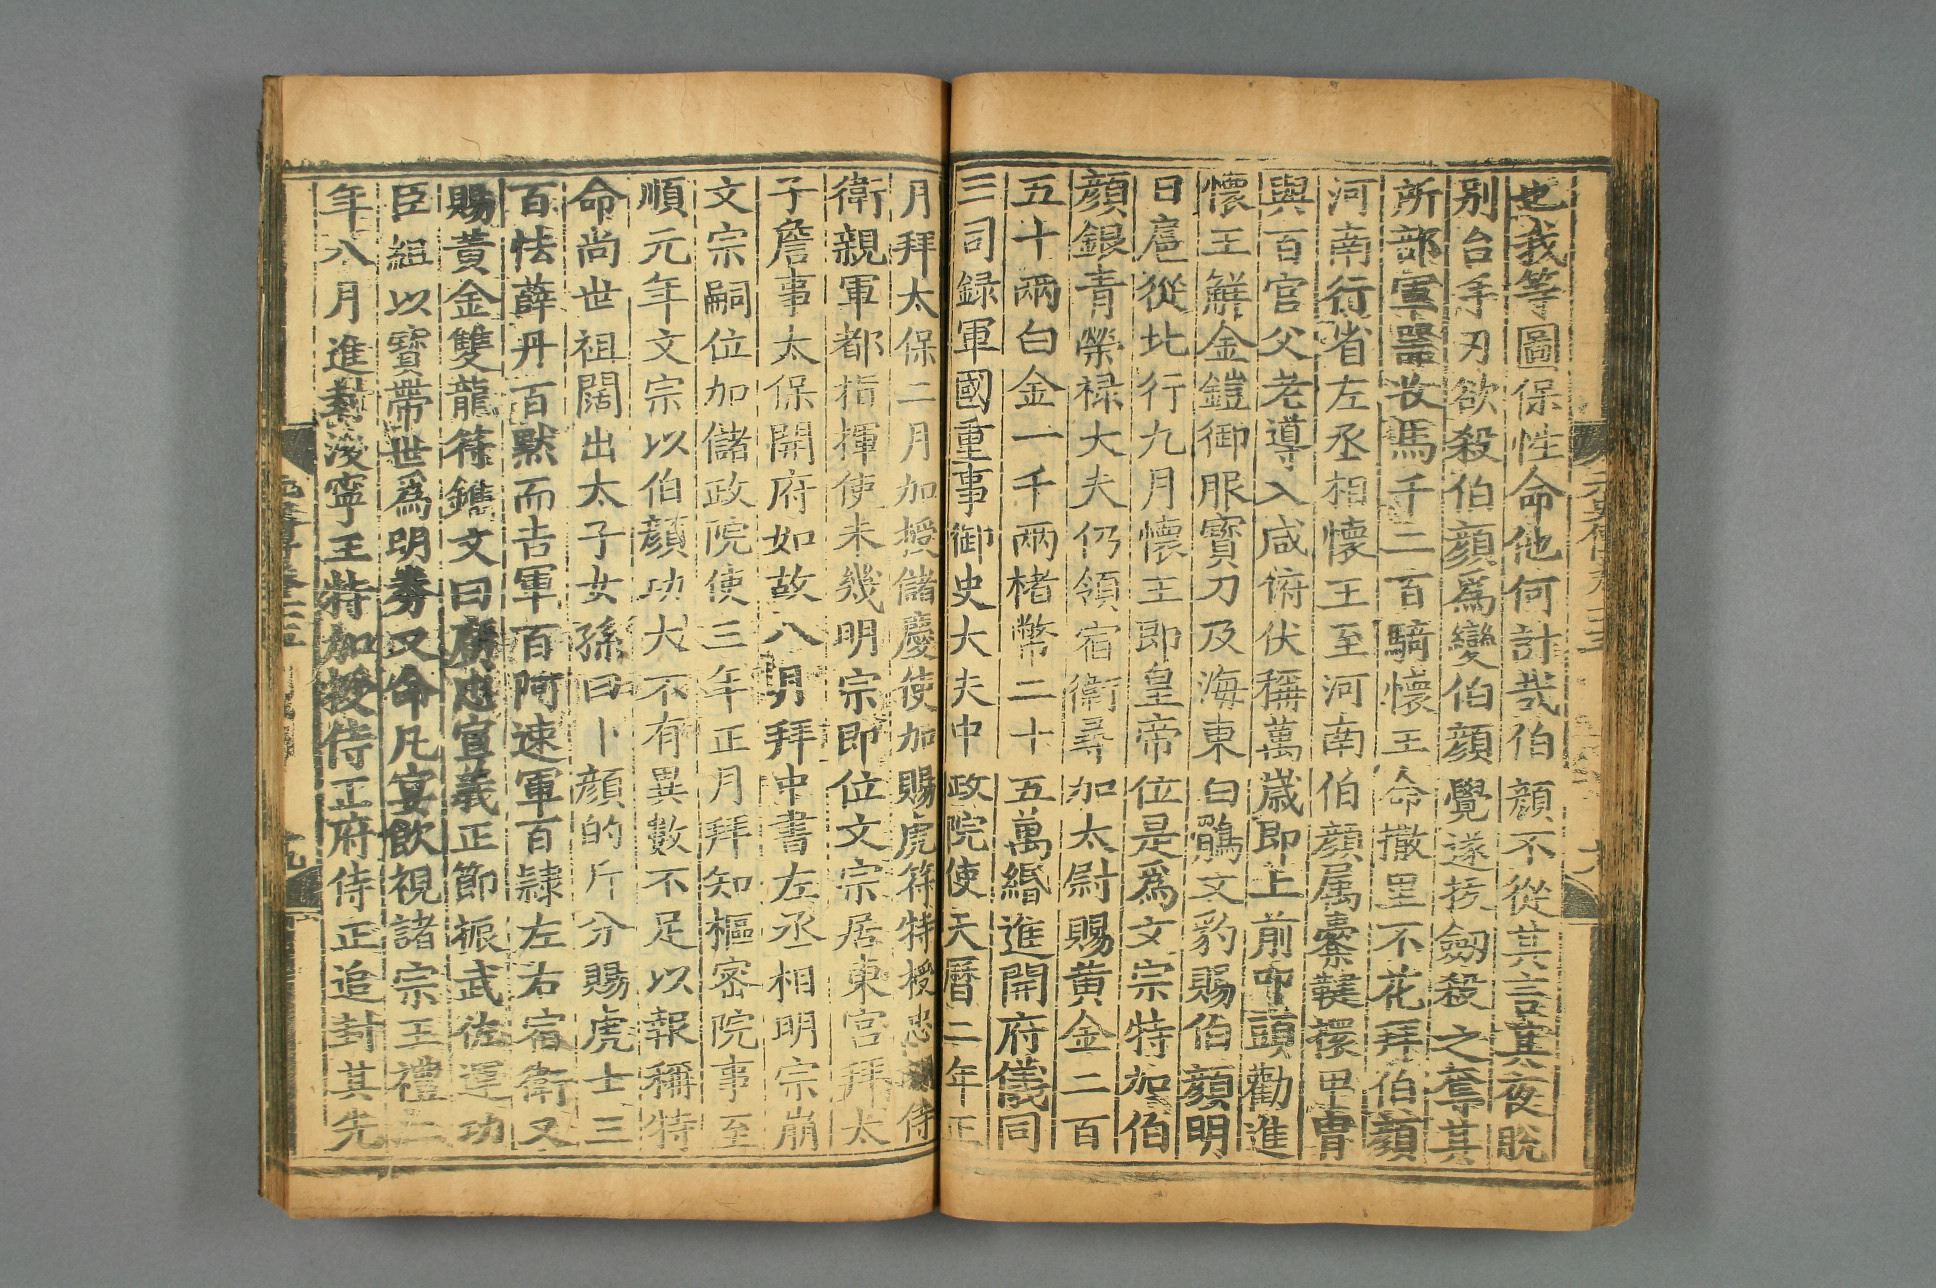 也我等圖保性命他何計哉伯顔不從其言其夜脫
别台手刃欲殺伯顔爲變伯顔覺遂拔劒殺之奪其
所部軍器收馬千二百騎懷王命撒里不花拜伯顔
河南行省左丞相懷王至河南伯顔属櫜鞬擐甲胄
與百官父老導入咸俯伏稱萬歳即上前叩頭勸進
懷王解金鎧御服寳刀及海東白鶻文豹賜伯顔明
日扈從北行九月懷王即皇帝位是爲文宗特加伯
顔銀青榮禄大夫仍領宿衛尋加太尉賜黄金二百
五十兩白金一千兩楮幣二十五萬緡進開府儀同
三司録軍國重事御史大夫中政院使天曆二年正
月拜太保二月加授儲慶使加賜虎符特授忠侍
衛親軍都指揮使未幾明宗即位文宗居東宫拜太
子詹事太保開府如故八月拜中書左丞相明宗崩
文宗嗣位加儲政院使三年正月拜知樞密院事至
順元年文宗以伯顔功大不有異數不足以報稱特
命尚世祖闊出太子女孫曰卜顔的斤分賜虎士三
百怯薛丹百黙而吉軍百阿速軍百隷左右宿衛又
賜黄金雙龍符鐫文曰廣忠宣義正節振武佐運功
臣組以寳帶世爲明券又命凡宴飲視諸宗王禮二
年八月進封浚寧王特加授侍正府侍正追封其先
元史傳卷二十五
十八
十九